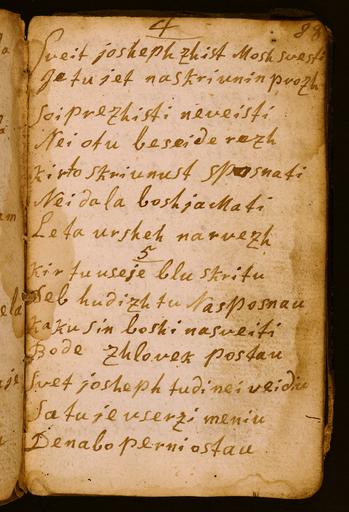 4 88
Sveit josheph zhist Mosh svesti
Je tu jet na skriunin prozh
Soi prezhisti neveisti
Nei otu beseide rezh
kir to skriunust sposnati
Nei dala boshja Mati
Leta ursheh nar vezh
5
kir tu useje blu skritu
Deb hudizh tu Nasposnau
kaku sin boshi nasveiti
Bode zhlovek postau
Svet josheph tudi nei veidiu
Sa tu je userzi meniu
De nabo per ni ostau